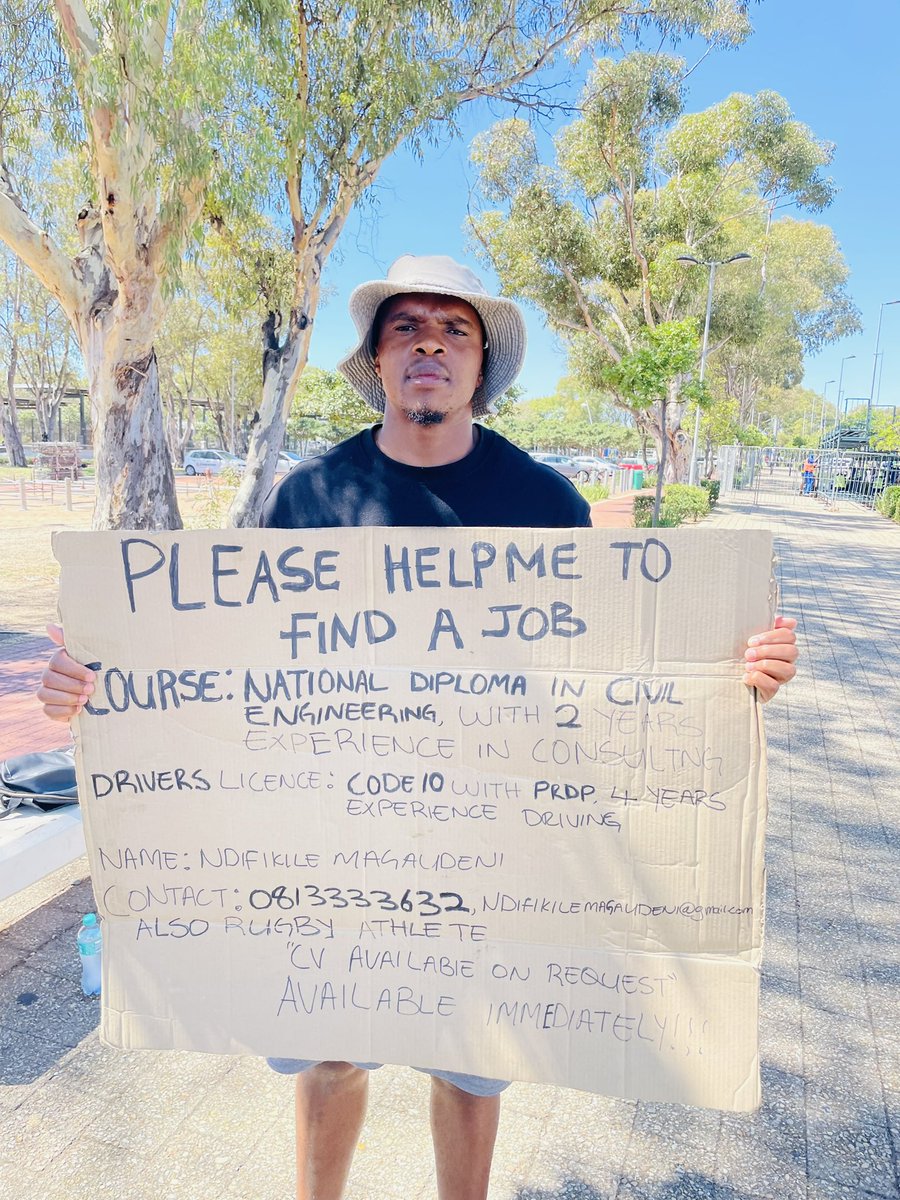 PLEASE HELP ME TO
FIND A JOB
COURSE: NATIONAL DIPLOMA IN CIVIL
ENGINEERING, WITH 2 YEARS
EXPERIENCE IN CONSULTING
DRIVERS LICENCE: CODE 10 WITH PRDP. 4 YEARS
EXPERIENCE DRIVING
NAME: NDIFIKILE MAGAUDENI
CONTACT: 0813333632, NDIFIKILEMAGAUDENI@gmail.com
ALSO RUGBY ATHLETE
"CV AVAILABLE ON REQUEST"
AVAILABLE IMMEDIATELY!!!